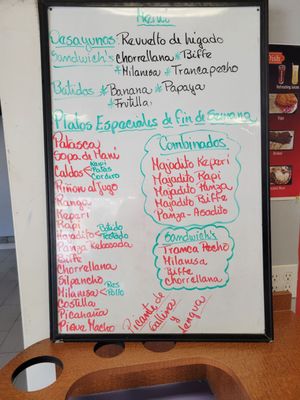 Menú
Desayunos: Revuelto de higado
Sandwich's *chorrellana *Biffe
*Milanusa *Trancapecho
Batidos *Banana *Papaya
*Frutilla.
Platos Especiales de fin de Semana
Palasca
Sopa de Mani
Caldos Kawi
Patas
Cordero
Riñon al Jugo
Ranga
Keperi
Rapi
Majadito Batido
Tostado
Panza Rebosada
Biffe
Chorrellana
Silpancho
Milanusa Res
Pollo
Costilla
Picanaria
Pique Macho
Combinados.
Majadito Keperi
Majadito Rapi
Majadito Panza
Majadito Biffe
Panza-Asadito
Sandwich's
Tranca Pecho
Milanusa
Biffe
Chorrellana
Picante de
Gallina
y
lengua